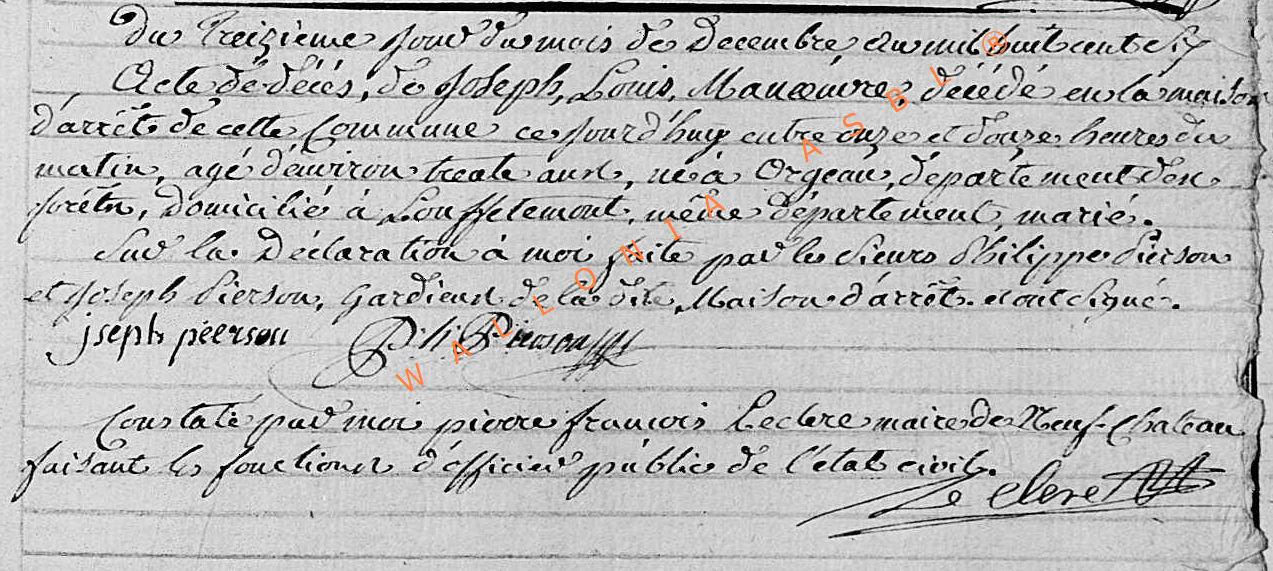 Du Treizieme jour du mois de Decembre an mil huit cent six
Acte de décés, de Joseph, Louis, Manœuvre, décédé en la maison
d'arrêt de cette Commune ce jourd'huy entre onze et douze heures du
matin, agé d'environ trente ans, né à Orgeau, département des
forêts, Domicilié à Louftemont, même département, marié.
Sur la Déclaration à moi faite par les sieurs Philippe Pierson
et Joseph Pierson, Gardiens de la dite Maison d'arrêt. et ont signé.
jseph péerson Ph Pierson
Constaté par moi pierre françois Leclere maire de Neuf-Chateau
faisant les fonctions d'officier públic de l'état civil.
Le clere
WALLONIA ASBL ®